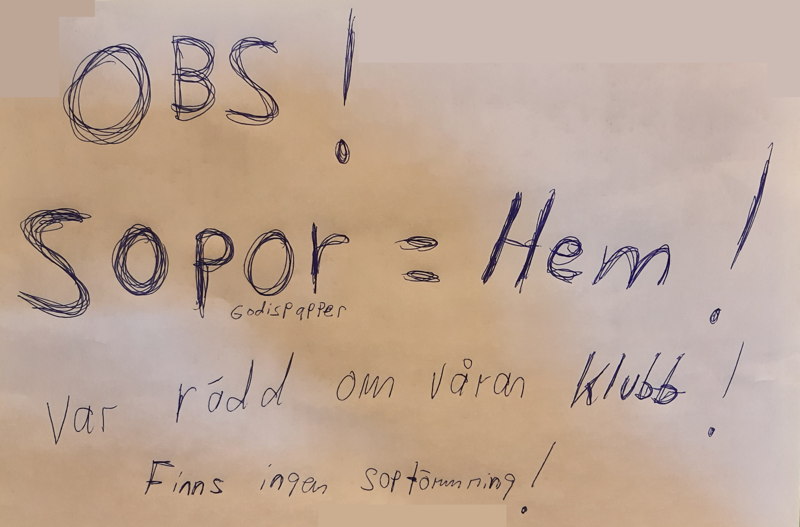 OBS!
Sopor = Hem!
Godispapper
Var rädd om våran klubb!
Finns ingen soptömnning!